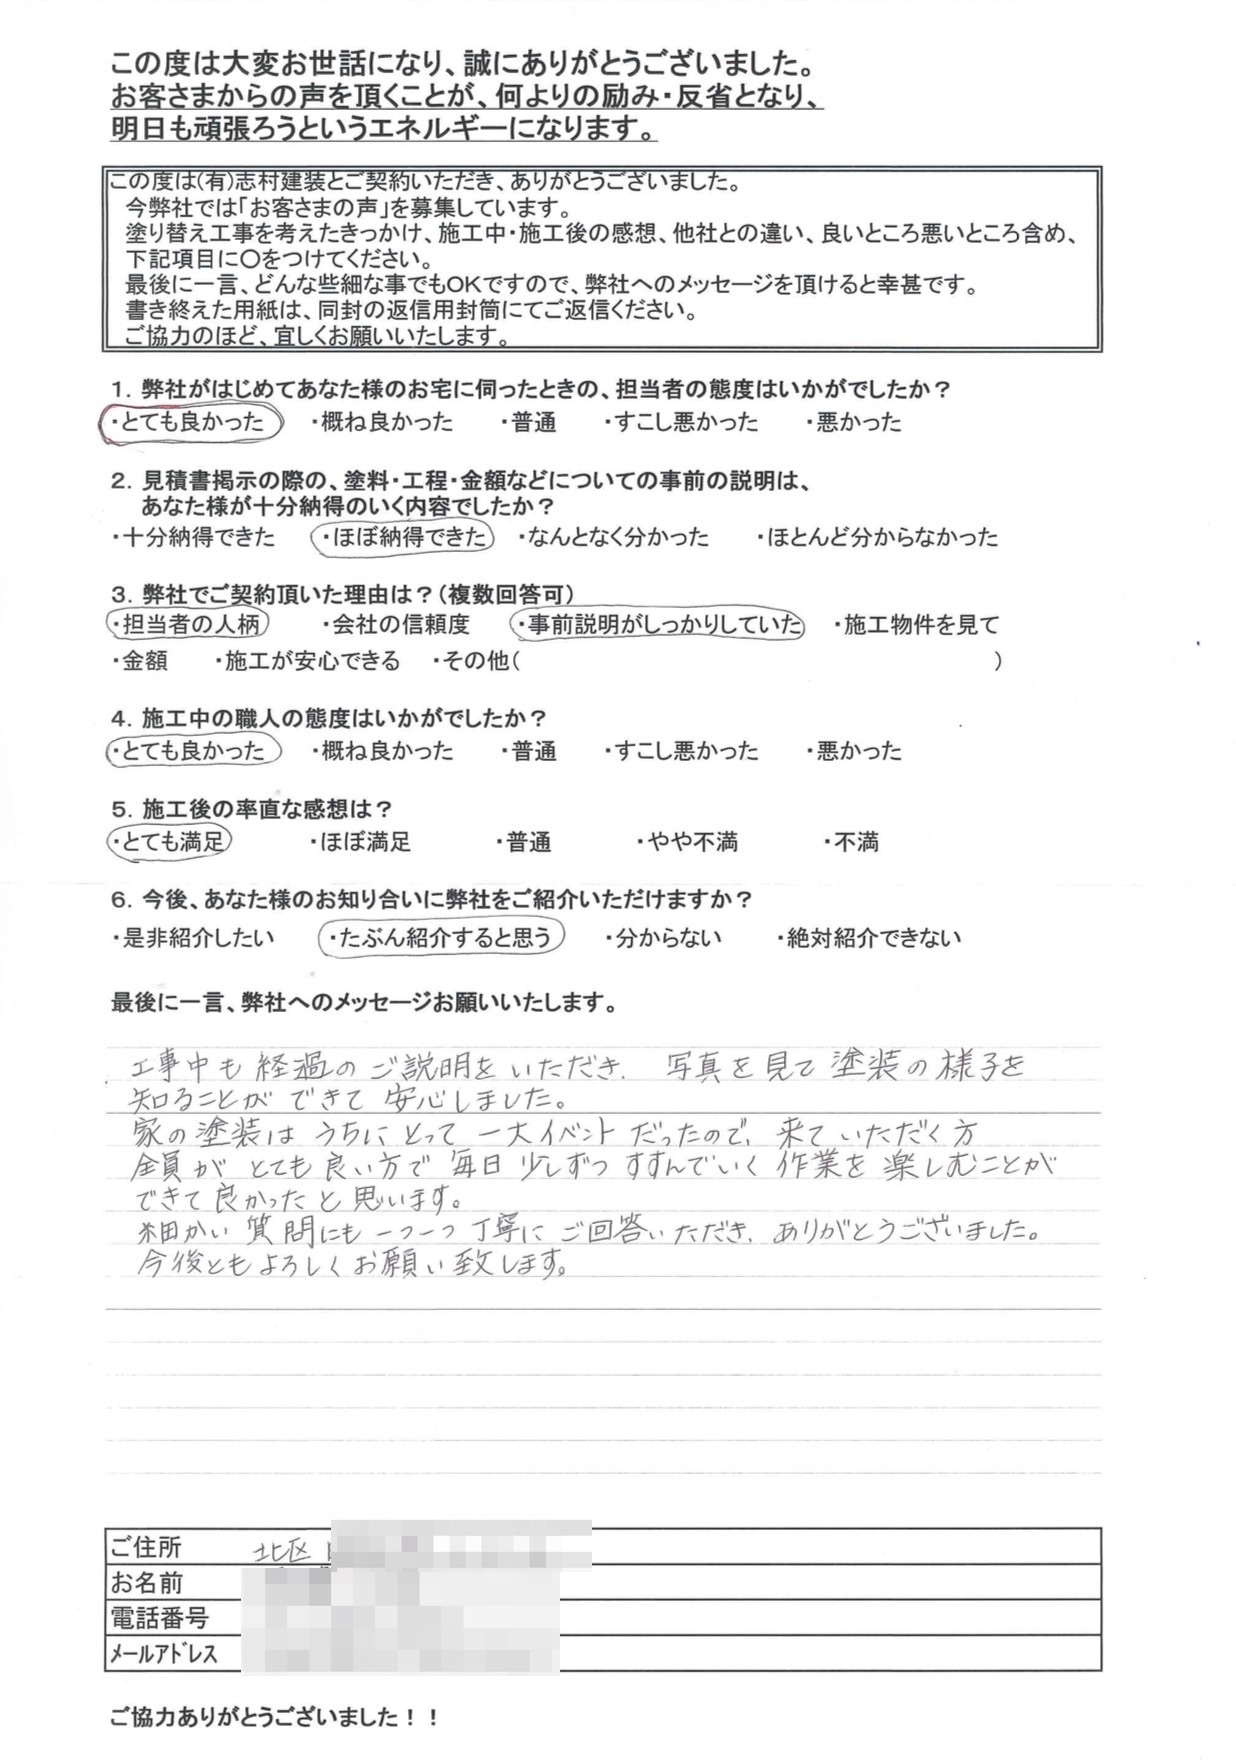 この度は大変お世話になり、誠にありがとうございました。
お客さまからの声を頂くことが、何よりの励み・反省となり、
明日も頑張ろうというエネルギーになります。
この度は(有)志村建装とご契約いただき、ありがとうございました。
今弊社では「お客さまの声」を募集しています。
塗り替え工事を考えたきっかけ、施工中・施工後の感想、他社との違い、良いところ悪いところ含め、
下記項目に〇をつけてください。
最後に一言、どんな些細な事でもOKですので、弊社へのメッセージを頂けると幸甚です。
書き終えた用紙は、同封の返信用封筒にてご返信ください。
ご協力のほど、宜しくお願いいたします。
1．弊社がはじめてあなた様のお宅に伺ったときの、担当者の態度はいかがでしたか？
・とても良かった ・概ね良かった ・普通 ・すこし悪かった ・悪かった
2．見積書掲示の際の、塗料・工程・金額などについての事前の説明は、
あなた様が十分納得のいく内容でしたか？
・十分納得できた ・ほぼ納得できた ・なんとなく分かった ・ほとんど分からなかった
3．弊社でご契約頂いた理由は？（複数回答可）
・担当者の人柄 ・会社の信頼度 ・事前説明がしっかりしていた ・施工物件を見て
・金額 ・施工が安心できる ・その他（ ）
4．施工中の職人の態度はいかがでしたか？
・とても良かった ・概ね良かった ・普通 ・すこし悪かった ・悪かった
5．施工後の率直な感想は？
・とても満足 ・ほぼ満足 ・普通 ・やや不満 ・不満
6．今後、あなた様のお知り合いに弊社をご紹介いただけますか？
・是非紹介したい ・たぶん紹介すると思う ・分からない ・絶対紹介できない
最後に一言、弊社へのメッセージお願いいたします。
工事中も経過のご説明をいただき、写真を見て塗装の様子を
知ることができて安心しました。
家の塗装はうちにとって一大イベントだったので、来ていただく方
全員がとても良い方で毎日少しずつすすんでいく作業を楽しむことが
できて良かったと思います。
細かい質問にも一つ一つ丁寧にご回答いただき、ありがとうございました。
今後ともよろしくお願い致します。
ご住所 北区
お名前
電話番号
メールアドレス
ご協力ありがとうございました！！